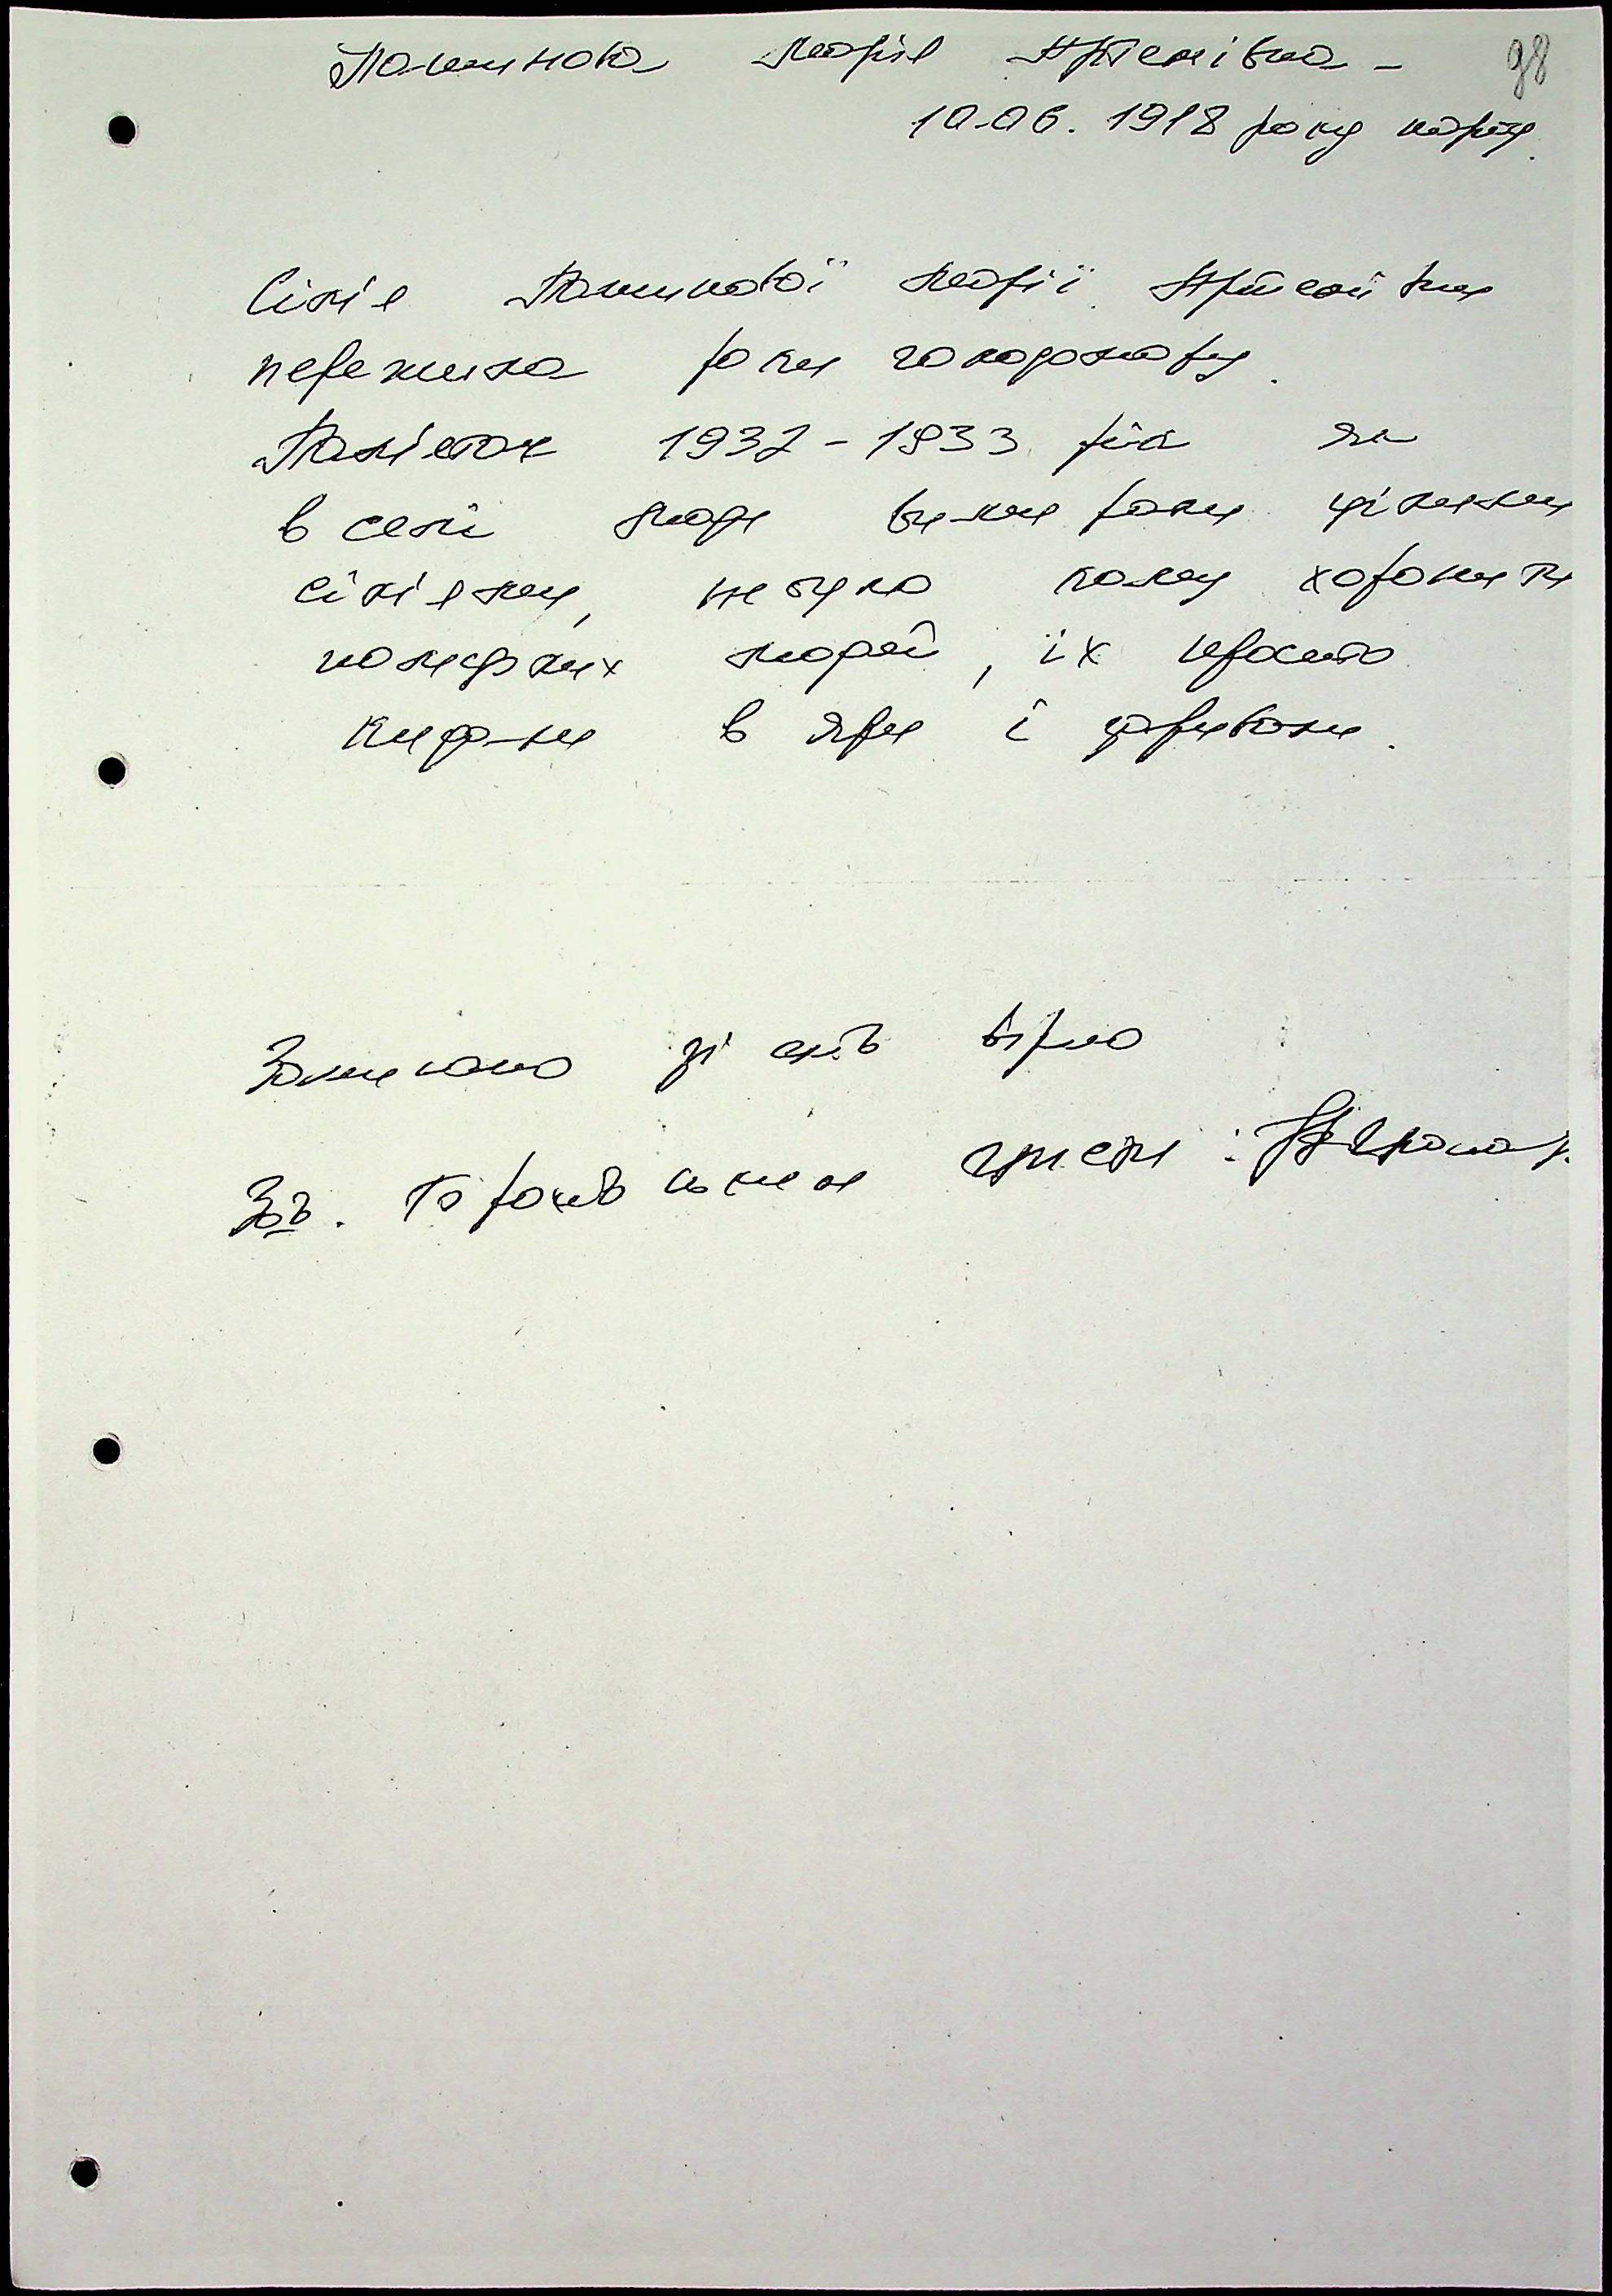 Пашинова Марія Артемівна – 98
10.06. 1918 року народ.
Сім'я Пашинової Марії Артемівни
пережила роки голодомору.
Пам'ятає 1932 – 1933 рік як
в селі люди вимирали цілими
сім'ями, не було кому хоронити
померлих людей, їх просто
кидали в яри і заривали.
Записано зі слів вірно
Зав.